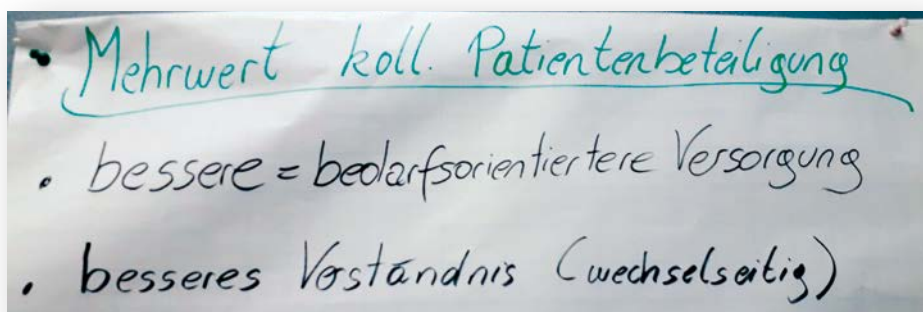 Mehrwert koll. Patientenbeteiligung
• bessere = bedarfsorientiertere Versorgung
• besseres Verständnis (wechselseitig)